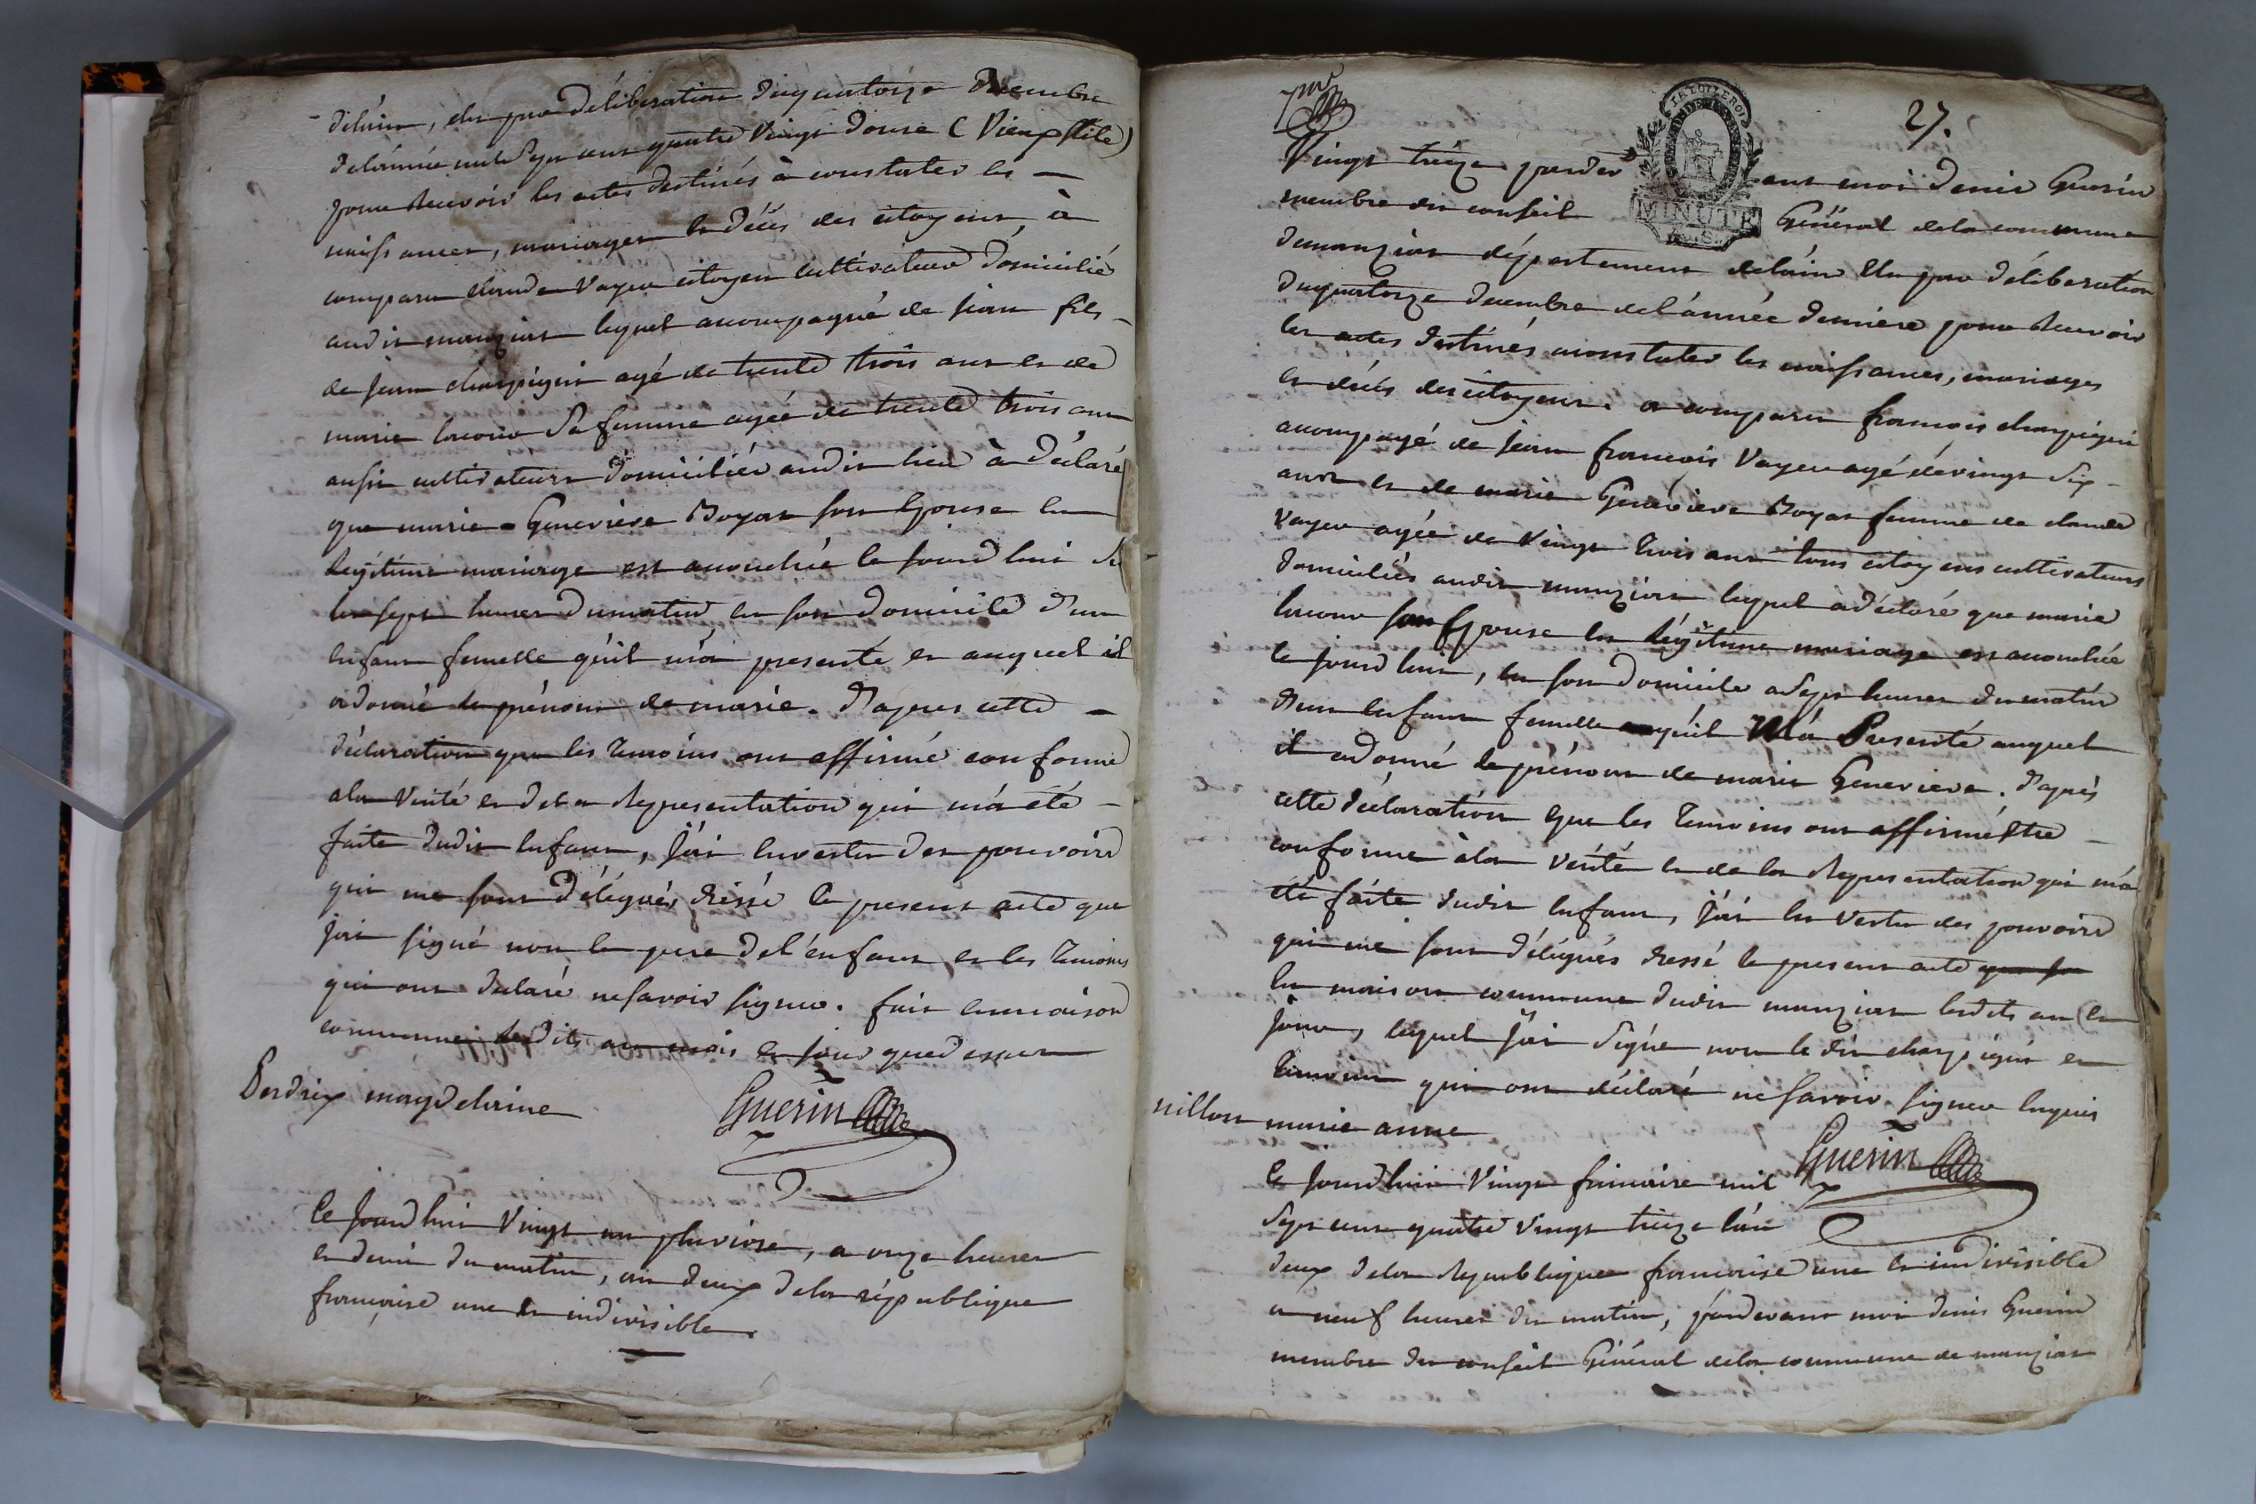 delâin, élu par délibération duquatorze Décembre
delânnée mile Sept cent quatre Vingt douse (Vieux stile)
pour Recevoir les actes destinés à constater les —
naissances, mariages et décés des citoyens, à
comparu claude Vayeu citoyen cultivateur domicilié
audit manziat lequel accompagné de jean fils
de jean charpigni agé de trente trois ans et de
marie sa femme agée de trente trois ans
aussi cultivateurs domiciliés audit lieu à déclaré
que marie Genevieve Boyat son Epouse en
légitime mariage est acouchée ce jourd'hui
les sept heures dumatin en son domicile d'un
enfant femelle qu'il m'a presenté et auquel il
adonné le prénom de marie. D'apres cette —
déclaration que les Temoins ont affirmé conforme
ala Verité et de la Representation qui m'a été —
faite dudit Enfant, j'ai Envertu des pouvoirs
qui me sont délégués, dréssé le present acte que
jai signé non le pere del'énfant et les Temoins
qui ont déclaré nesavoir signer. fait enmaison
commune lesdits an mois et jour quedessus
Perdrix magdelaine
Guerin
Ce jourd'hui Vingt un pluviose, a onze heures
et demi du matin, an deux dela république
françoise une et indivisible.
27.
Vingt treize pardev ant moi denis Guerin
membre du conseil Général dela commune
MINUTE
demanziat département delâin Elu par délibération
duquatorze decembre del'année derniere pour Recevoir
les actes destinés aconstater les naissances, mariages
et décés descitoyens. a comparu francois charpigni
acompagné de jean françois Vayeu agé devingt Six
ans et de marie Genevieve Boyat femme de claude
Vayeu agée de Vingt trois ans tous citoyens cultivateurs
domiciliés audit manziat lequel adéclaré que marie
son Epouse en légitime mariage est acouchée
ce jourd'hui, en son domicile aSept heures dumatin
d'un Enfant femelle qu'il M'a Presenté auquel
il adonné le prénom de marie Genevieve. d'aprés
cette déclaration que les Temoins ont affirmé Etre —
conforme àla Vérité et de la Representation qui m'a
été faite dudit Enfant, j'ai En Vertu des pouvoirs
qui me sont délégués dressé le present acte
En maison commune dudit manziat lesdits an et
jour, lequel j'ai Signé non le dit charpigni et
Temoins qui ont déclaré nesavoir signer Enquis
nillon marie anne
Guerin
Ce jourd'hui Vingt frimaire mil
Sept cent quatre Vingt treize l'an
deux dela Republique francoise une et indivisible
a neuf heures du matin, pardevant moi denis Guerin
membre du conseil Général dela commune de manziat